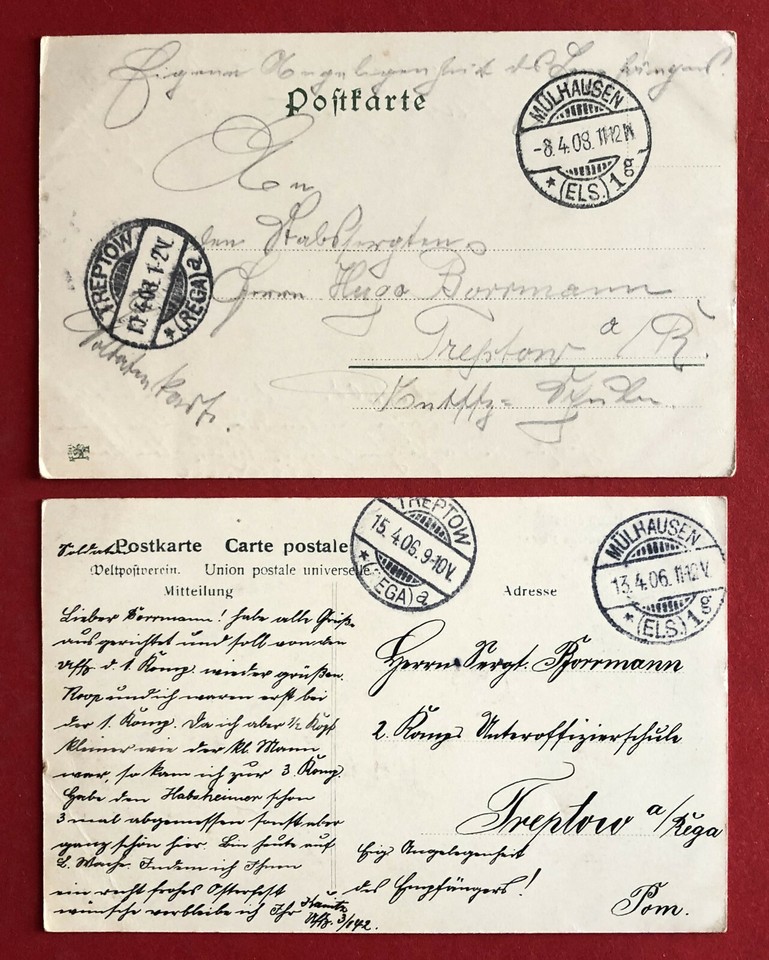 Eigene Angelegenheit des Empfängers.
Postkarte
MÜLHAUSEN
-8.4.08. 11-12 N
* (ELS.) 1 g
An
den Stabssergten
Herrn Hugo Borrmann
Treptow a/R.
Untffz= Schule.
TREPTOW
10.4.08. 1-2V.
* (REGA) a
Soldatenkarte.
Postkarte Carte postale
Weltpostverein. Union postale universelle
Mitteilung
Adresse
TREPTOW
15.4.06. 9-10V.
* (REGA) a
MÜLHAUSEN
13.4.06. 11-12V.
* (ELS.) 1 g
Lieber Borrmann! habe alle Grüße
ausgerichtet und soll von den
Uffz. d. 1. Komp. wieder grüßen.
Roop und ich waren erst bei
der 1. Komp. Da ich aber 1/2 Kopf
kleiner wie der kl. Mann
war, so kam ich zur 3. Komp.
Habe den Habsheimer schon
3 mal abgemessen sonst aber
ganz schön hier. Bin heute auf
L. Wache. Indem ich Ihnen
ein recht frohes Osterfest
wünsche verbleibe ich Ihr
Uffz. 3/142.
Herrn Sergt. Borrmann
2. Komp. Unteroffizierschule
Treptow a/Rega
Pom.
Eig. Angelegenheit
des Empfängers!